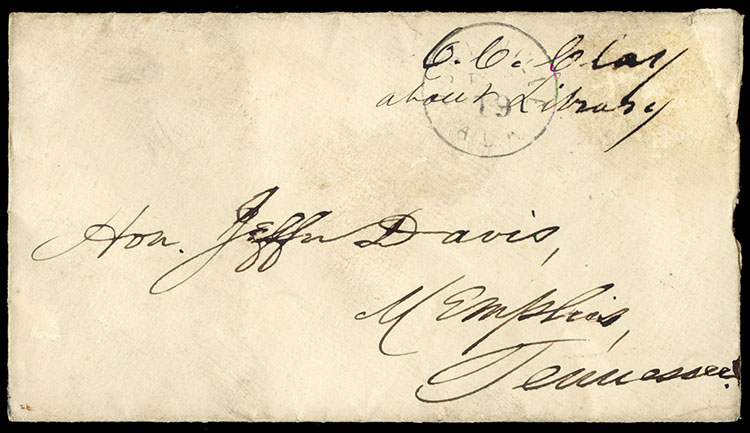 C. C. Clay
about Library
19
ALA
Hon. Jeffn Davis,
Memphis,
Tennessee.